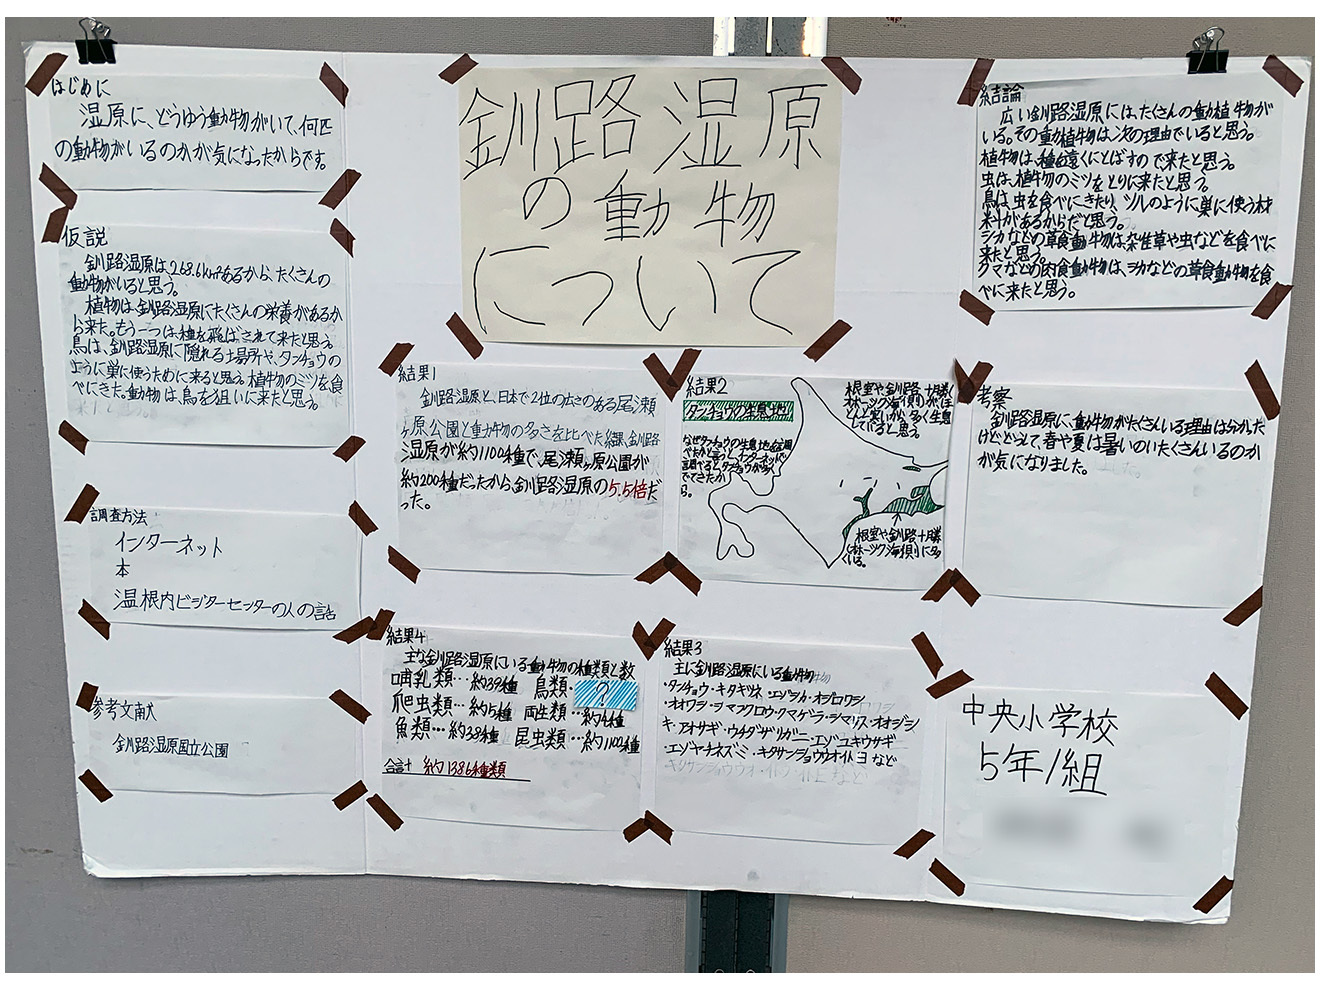 釧路湿原
の動物
について
はじめに
湿原に、どうゆう動物がいて、何匹
の動物がいるのかが気になったからです。
仮説
釧路湿原は268.6km²あるから、たくさんの
動物がいると思う。
植物は、釧路湿原にたくさんの栄養があるか
ら来た。もう一つは、種を飛ばされて来たと思う
鳥は、釧路湿原に隠れる場所や、タンチョウの
ように巣に使うために来ると思う。植物のミツを食
べにきた。動物は、鳥を狙いに来たと思う。
調査方法
インターネット
本
温根内ビジターセンターの人の話
参考文献
釧路湿原国立公園
結果1
釧路湿原と、日本で2位の広さのある尾瀬
ヶ原公園と動物の多さを比べた結果、釧路
湿原が約1100種で、尾瀬ヶ原公園が
約200種だったから、釧路湿原の5.5倍だ
った。
結果2
タンチョウの生息地
なぜタンチョウの生息地を調
べたかと言うと、インターネットで
調べるとタンチョウが多く
でてきたか
ら。
根室や釧路、十勝
(オホーツク海側)がほ
とんど
多く生息
していると思う。
根室や釧路、十勝
(オホーツク海側)に多く
いる。
結果3
主に釧路湿原にいる動物
・タンチョウ・キタキツネ・エゾシカ・オジロワシ
・オオワシ・シマフクロウ・クマゲラ・シマリス・オオジシ
ギ・アオサギ・ウチダザリガニ・エゾユキウサギ
・エゾヤチネズミ・キタサンショウウオ・イトヨ など
結果4
主な釧路湿原にいる動物の種類と数
哺乳類…約39種 鳥類・?
爬虫類…約5種 両生類…約4種
魚類…約38種 昆虫類…約1100種
合計 約1386種類
結論
広い釧路湿原には、たくさんの動植物が
いる。その動植物は、次の理由でいると思う。
植物は、種を遠くにとばすので来たと思う。
虫は、植物のミツをとりに来たと思う。
鳥は、虫を食べにきたり、ツルのように巣に使う材
料があるからだと思う。
シカなどの草食動物は、雑草や虫などを食べに
来たと思う。
クマなどの肉食動物は、シカなどの草食動物を食
べに来たと思う。
考察
釧路湿原に、動物がたくさんいる理由はわかった
けど、どうして、春や夏は暑いのいたくさんいるのか
が気になりました。
中央小学校
5年1組